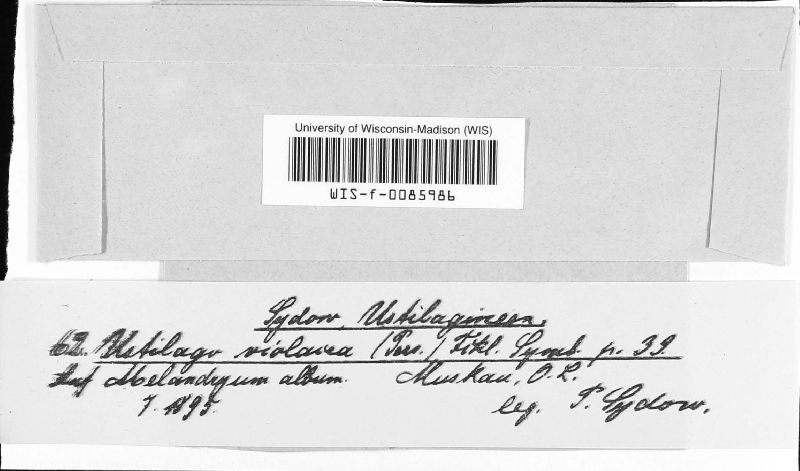 University of Wisconsin-Madison (WIS)
WIS-f-0085986
Sydow, Ustilagineen.
62. Ustilago violacea (Pers.) Fckl. Symb. p. 39.
Auf Melandryum album. Muskau, O.L.
7. 1895. leg. P. Sydow.